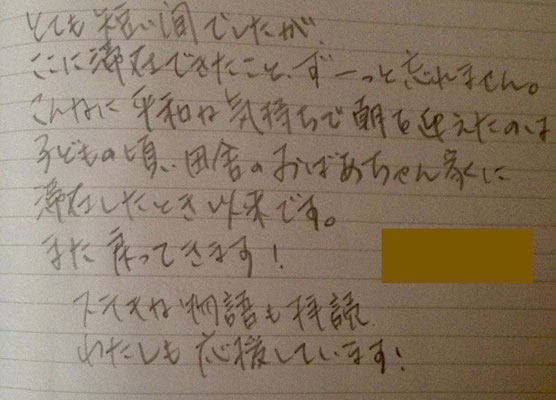 とても短い間でしたが、
ここに滞在できたこと、ずーっと忘れません。
こんなに平和な気持ちで朝を迎えたのは
子どもの頃、田舎のおばあちゃん家に
滞在したとき以来です。
また戻ってきます!
ステキな物語も拝読
わたしも応援しています!